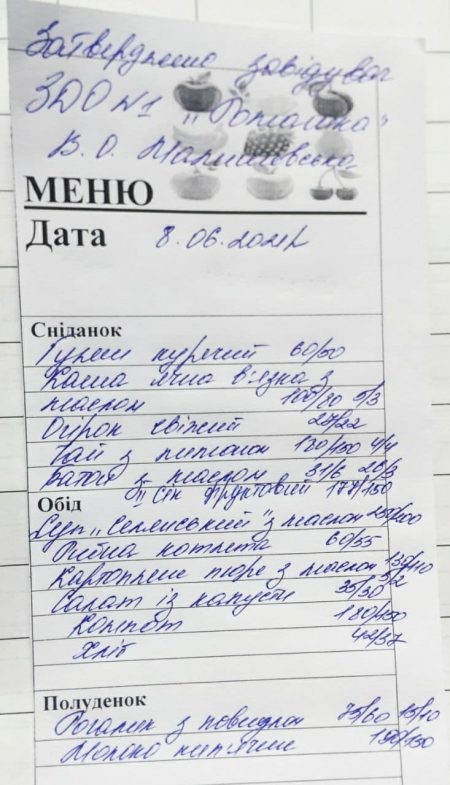 Затверджено завідувач
ЗДО №1 „Ромашка"
В.О. Малишовська
МЕНЮ
Дата 8.06.2021р
Сніданок
Гуляш курячий 60/50
Каша ячна в'язка з
маслом 100/80 5/3
Огірок свіжий 27/22
Чай з лимоном 180/150 4/4
Батон з маслом 31/6 26/3
II Сік фруктовий 177/150
Обід
Суп „Селянський" з маслом 250/200
Рибна котлета 60/55
Картопляне пюре з маслом 130/110
3/2
Салат із капусти 35/30
Компот 180/150
Хліб 42/37
Полуденок
Рогалик з повидлом 75/60 15/10
Молоко кипячене 190/150